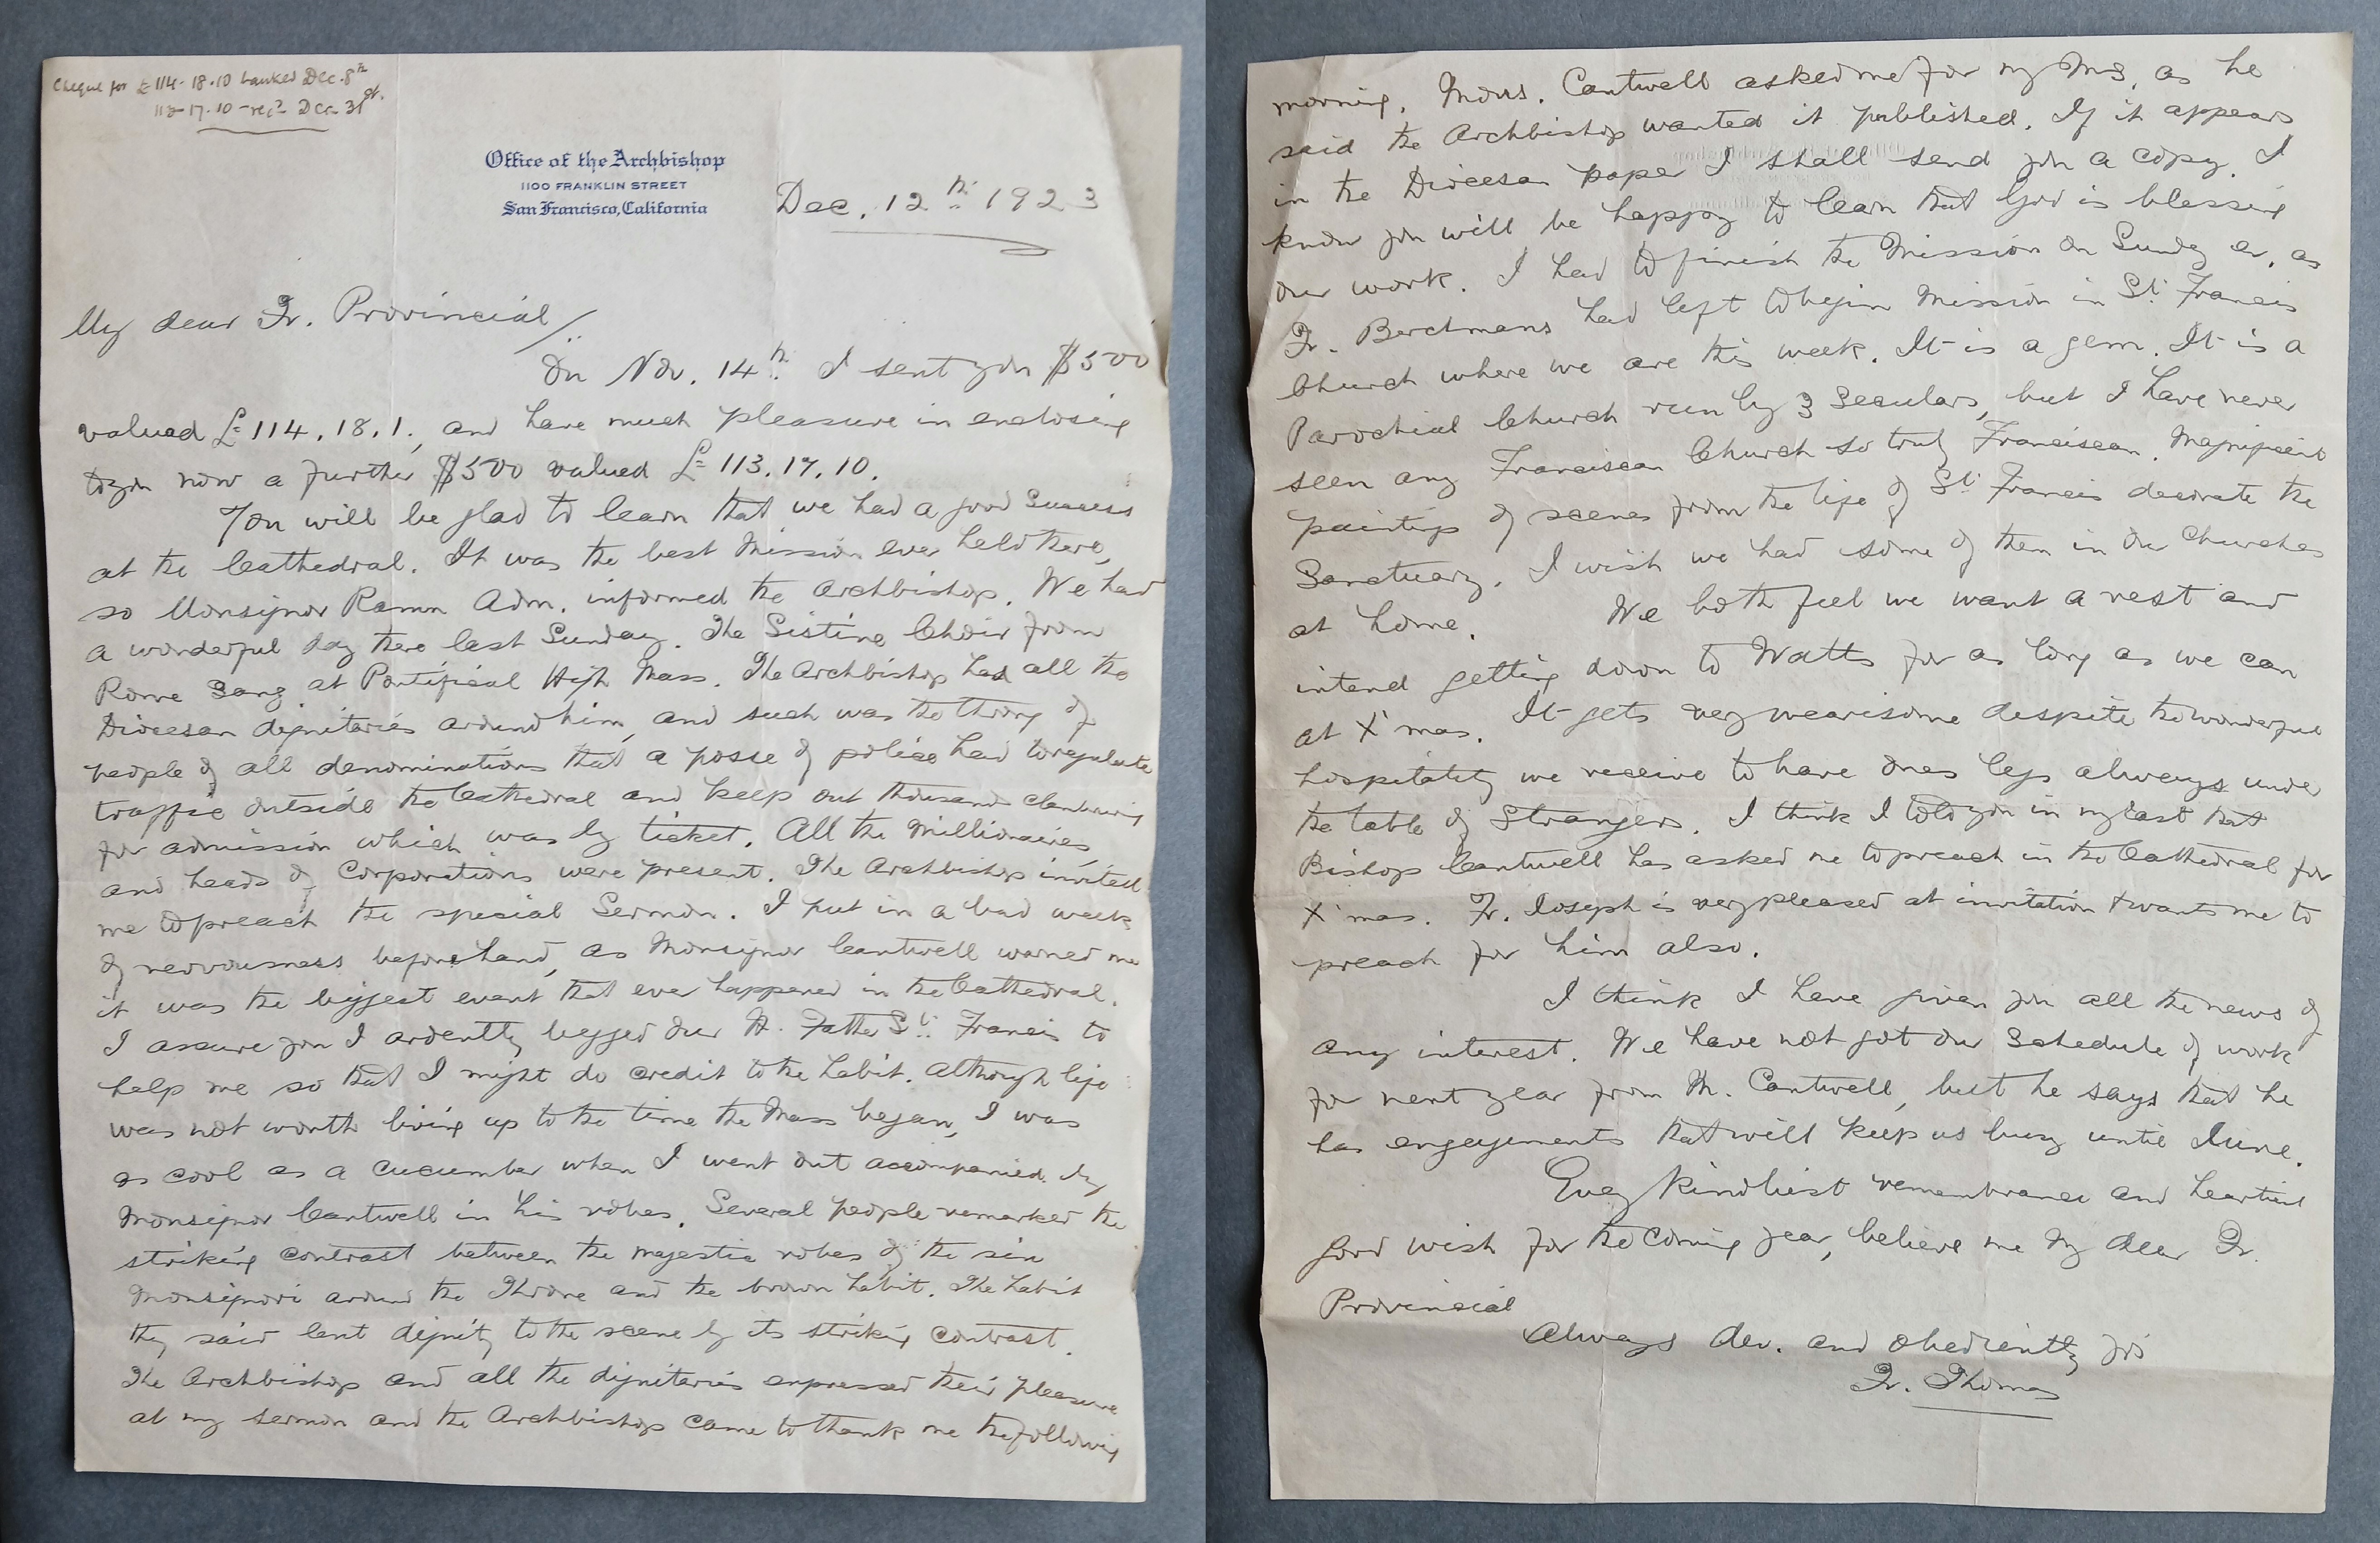 Cheque for £114-18.10 banked Dec. 8th
113-17.10 - recd Dec 31st.
Office of the Archbishop
1100 FRANKLIN STREET
San Francisco, California
Dec. 12th 1923
My dear Fr. Provincial/
On Nov. 14th I sent you $500
valued £114.18.1., and have much pleasure in enclosing
to you now a further $500 valued £113.17.10.
You will be glad to learn that we had a good success
at the Cathedral. It was the best Mission ever held there,
so Monsignor Ramm Adm. informed the Archbishop. We had
a wonderful day there last Sunday. The Sistine Choir from
Rome sang at Pontifical High Mass. The Archbishop had all the
Diocesan dignitaries around him, and such was the throng of
people of all denominations that a posse of police had to regulate
traffic outside the Cathedral and keep out thousands clamouring
for admission which was by ticket. All the Millionaires,
and heads of Corporations were present. The Archbishop invited
me to preach the special Sermon. I put in a bad week
of nervousness beforehand, as Monsignor Cantwell warned me
it was the biggest event that ever happened in the Cathedral.
I assure you I ardently begged our H. Father St. Francis to
help me so that I might do credit to the habit. Although life
was not worth living up to the time the Mass began, I was
as cool as a cucumber when I went out accompanied by
Monsignor Cantwell in his robes. Several people remarked the
striking contrast between the majestic robes of the six
Monsignori around the Throne and the brown habit. The habit
they said lent dignity to the scene by its striking contrast.
The Archbishop and all the dignitaries expressed their pleasure
at my sermon and the Archbishop came to thank me the following
morning. Monsr. Cantwell asked me for my MS, as he
said the Archbishop wanted it published. If it appears
in the Diocesan paper I shall send you a copy. I
know you will be happy to learn that God is blessing
our work. I had to finish the Mission on Sunday ev. as
Fr. Berchmans had left to begin Mission in St. Francis
Church where we are this week. It is a gem. It is a
Parochial Church run by 3 Seculars, but I have never
seen any Franciscan Church so truly Franciscan. Magnificent
paintings of scenes from the life of St. Francis decorate the
Sanctuary. I wish we had some of them in our Churches
at home. We both feel we want a rest and
intend getting down to Watts for as long as we can
at X'mas. It gets very wearisome despite the wonderful
hospitality we receive to have ones legs always under
the table of Strangers. I think I told you in my last that
Bishop Cantwell has asked me to preach in the Cathedral for
X'mas. Fr. Joseph is very pleased at invitation & wants me to
preach for him also.
I think I have given you all the news of
any interest. We have not got our Schedule of work
for next year from M. Cantwell, but he says that he
has engagements that will keep us busy until June.
Every kindliest remembrance and heartiest
good wish for the coming year, believe me my dear Fr.
Provincial
Always dev. and obediently yrs
Fr. Thomas